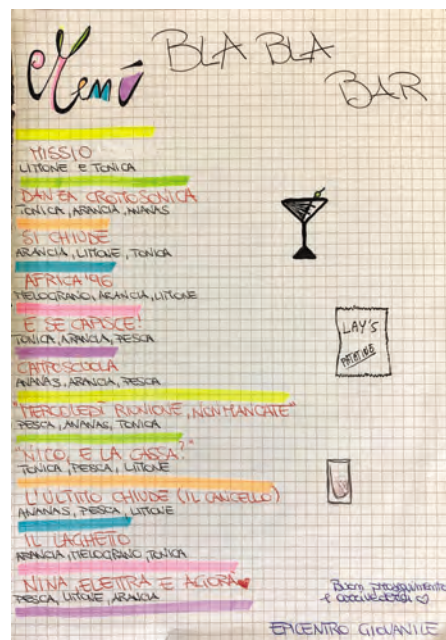 Menù
BLA BLA
BAR
MISSIO
LIMONE E TONICA
DANZA CROMOSONICA
TONICA, ARANCIA, ANANAS
SI CHIUDE
ARANCIA, LIMONE, TONICA
AFRICA '96
MELOGRANO, ARANCIA, LIMONE
E SE CAPISCE!
TONICA, ARANCIA, PESCA
CAMPOSCUOLA
ANANAS, ARANCIA, PESCA
"MERCOLEDÌ RIUNIONE, NON MANCATE"
PESCA, ANANAS, TONICA
"NICO, E LA CASSA?"
TONICA, PESCA, LIMONE
L'ULTIMO CHIUDE (IL CANCELLO)
ANANAS, PESCA, LIMONE
IL LAGHETTO
ARANCIA, MELOGRANO, TONICA
NINA, ELETTRA E AGORÀ
PESCA, LIMONE, ARANCIA
LAY'S
PATATINE
Buon proseguimento
e arrivederci
EPICENTRO GIOVANILE